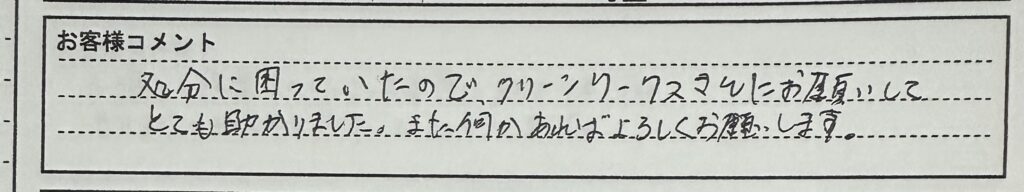 お客様コメント
処分に困っていたので、クリーンワークスさんにお願いして
とても助かりました。また何かあればよろしくお願いします。